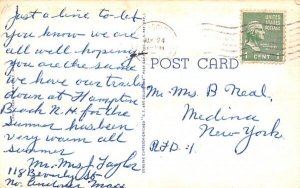 Just a line to let
you know we are
all well hoping
you are the same
we have our trailer
down at Hampton
Beach N.H. for the
Summer has been
very warm all
summer
Mr. Mrs J. Taylor
118 Beverly St
No. Andover Mass
UNITED STATES
POSTAGE
1 CENT 1
POST CARD
Mr. Mrs B Neal,
Medina
New York.
RFD #1